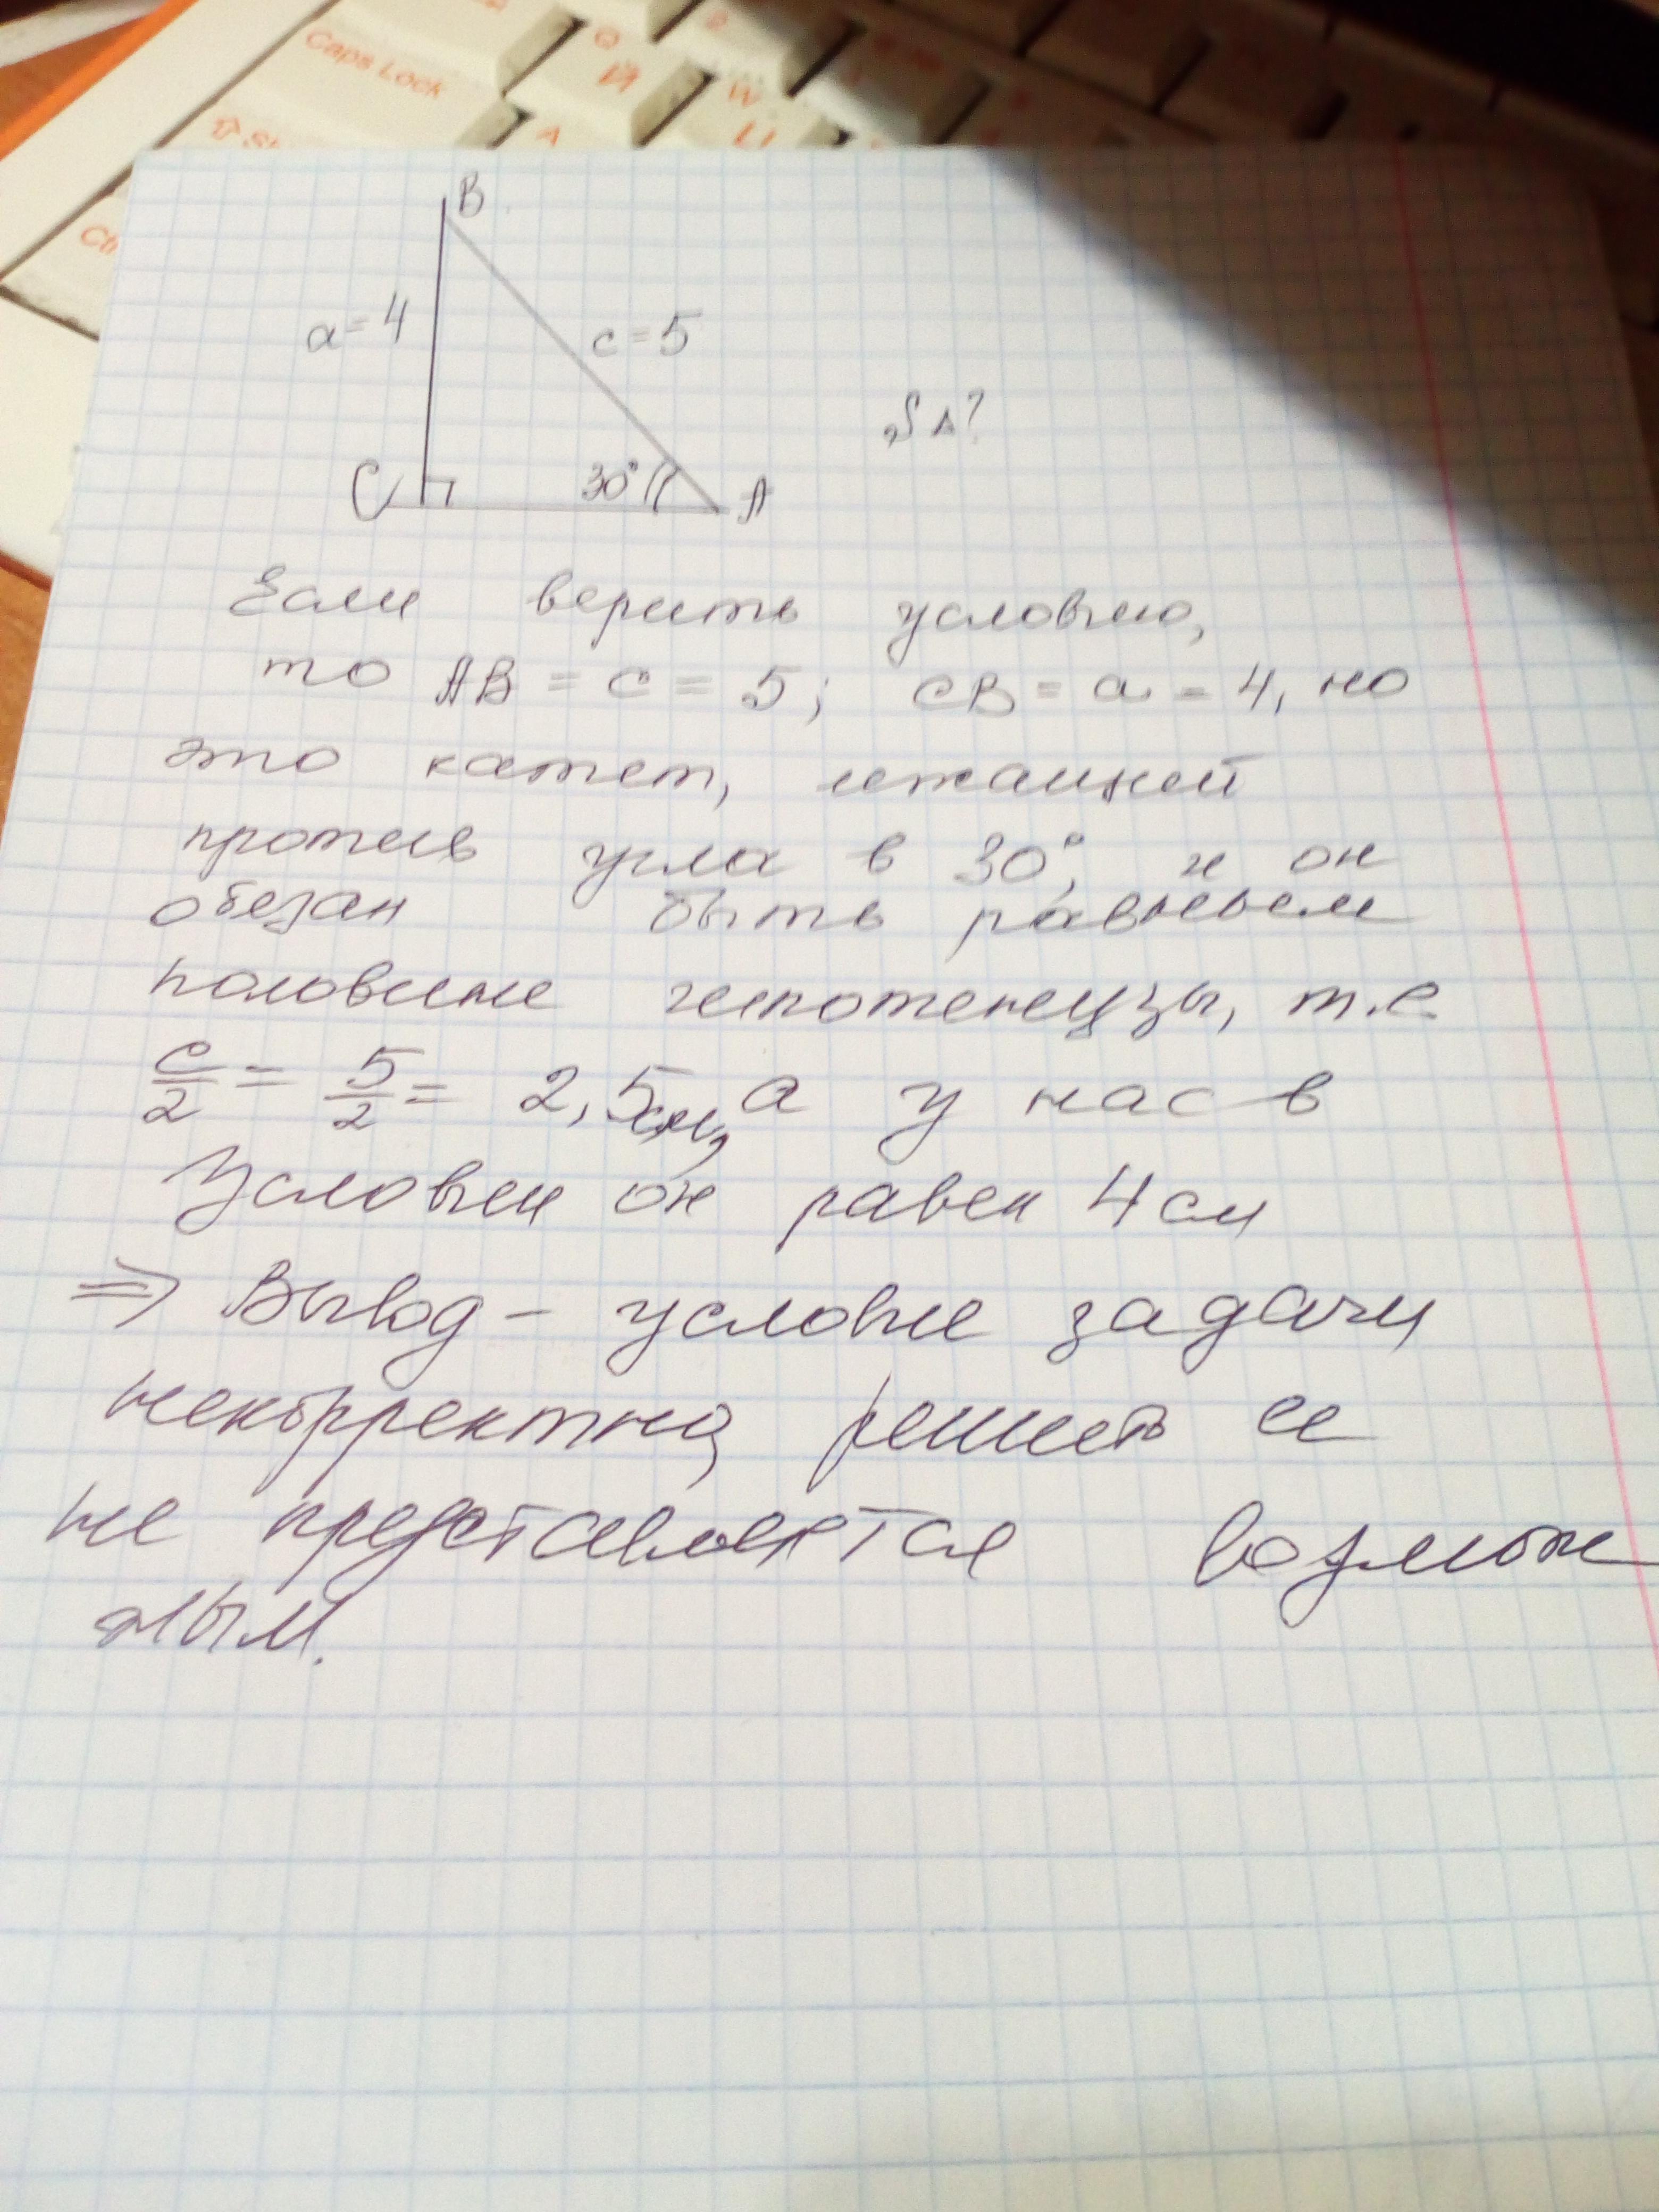 Caps Lock
Q
Й
W
Ц
A
B
a=4
c=5
S △?
C
30°
A
Если верить условию,
то AB = c = 5; CB = a = 4, но
это катет, лежащий
против угла в 30°, и он
обезан быть равным
половине гипотенузы, т.е
c/2 = 5/2 = 2,5см, а у нас в
Условии он равен 4см
⇒ Вывод - условие задачи
некорректно, решить ее
не представляется возмож
ным.